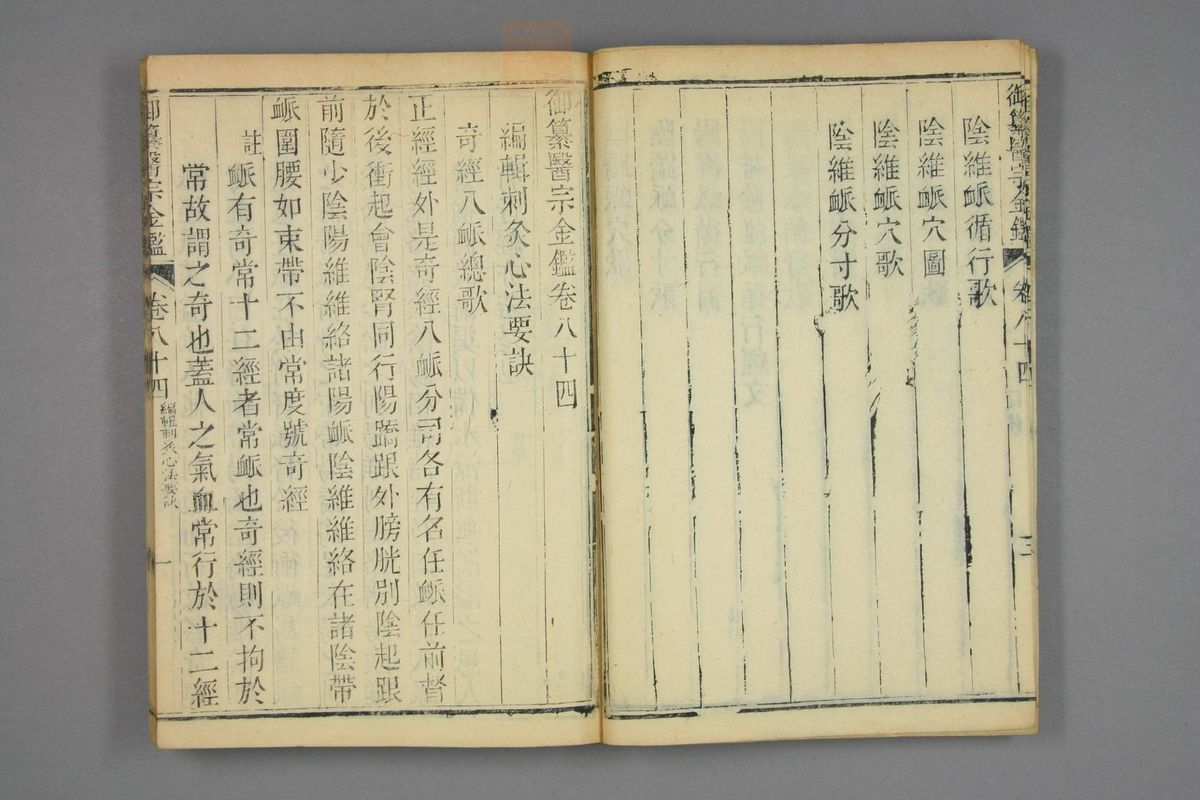 御纂醫宗金鑑 卷八十四 目錄 三
陰維䘑循行歌
陰維䘑穴圖
陰維䘑穴歌
陰維䘑分寸歌
御纂醫宗金鑑卷八十四
編輯刺灸心法要訣
奇經八䘑總歌
正經經外是奇經八䘑分司各有名任䘑任前督
於後衝起會陰腎同行陽蹻跟外膀胱別陰起跟
前隨少陰陽維維絡諸陽䘑陰維維絡在諸陰帶
䘑圍腰如束帶不由常度號奇經
註䘑有奇常十二經者常䘑也奇經則不拘於
常故謂之奇也蓋人之氣血常行於十二經
御纂醫宗金鑑 卷八十四 編輯刺灸心法要訣 一